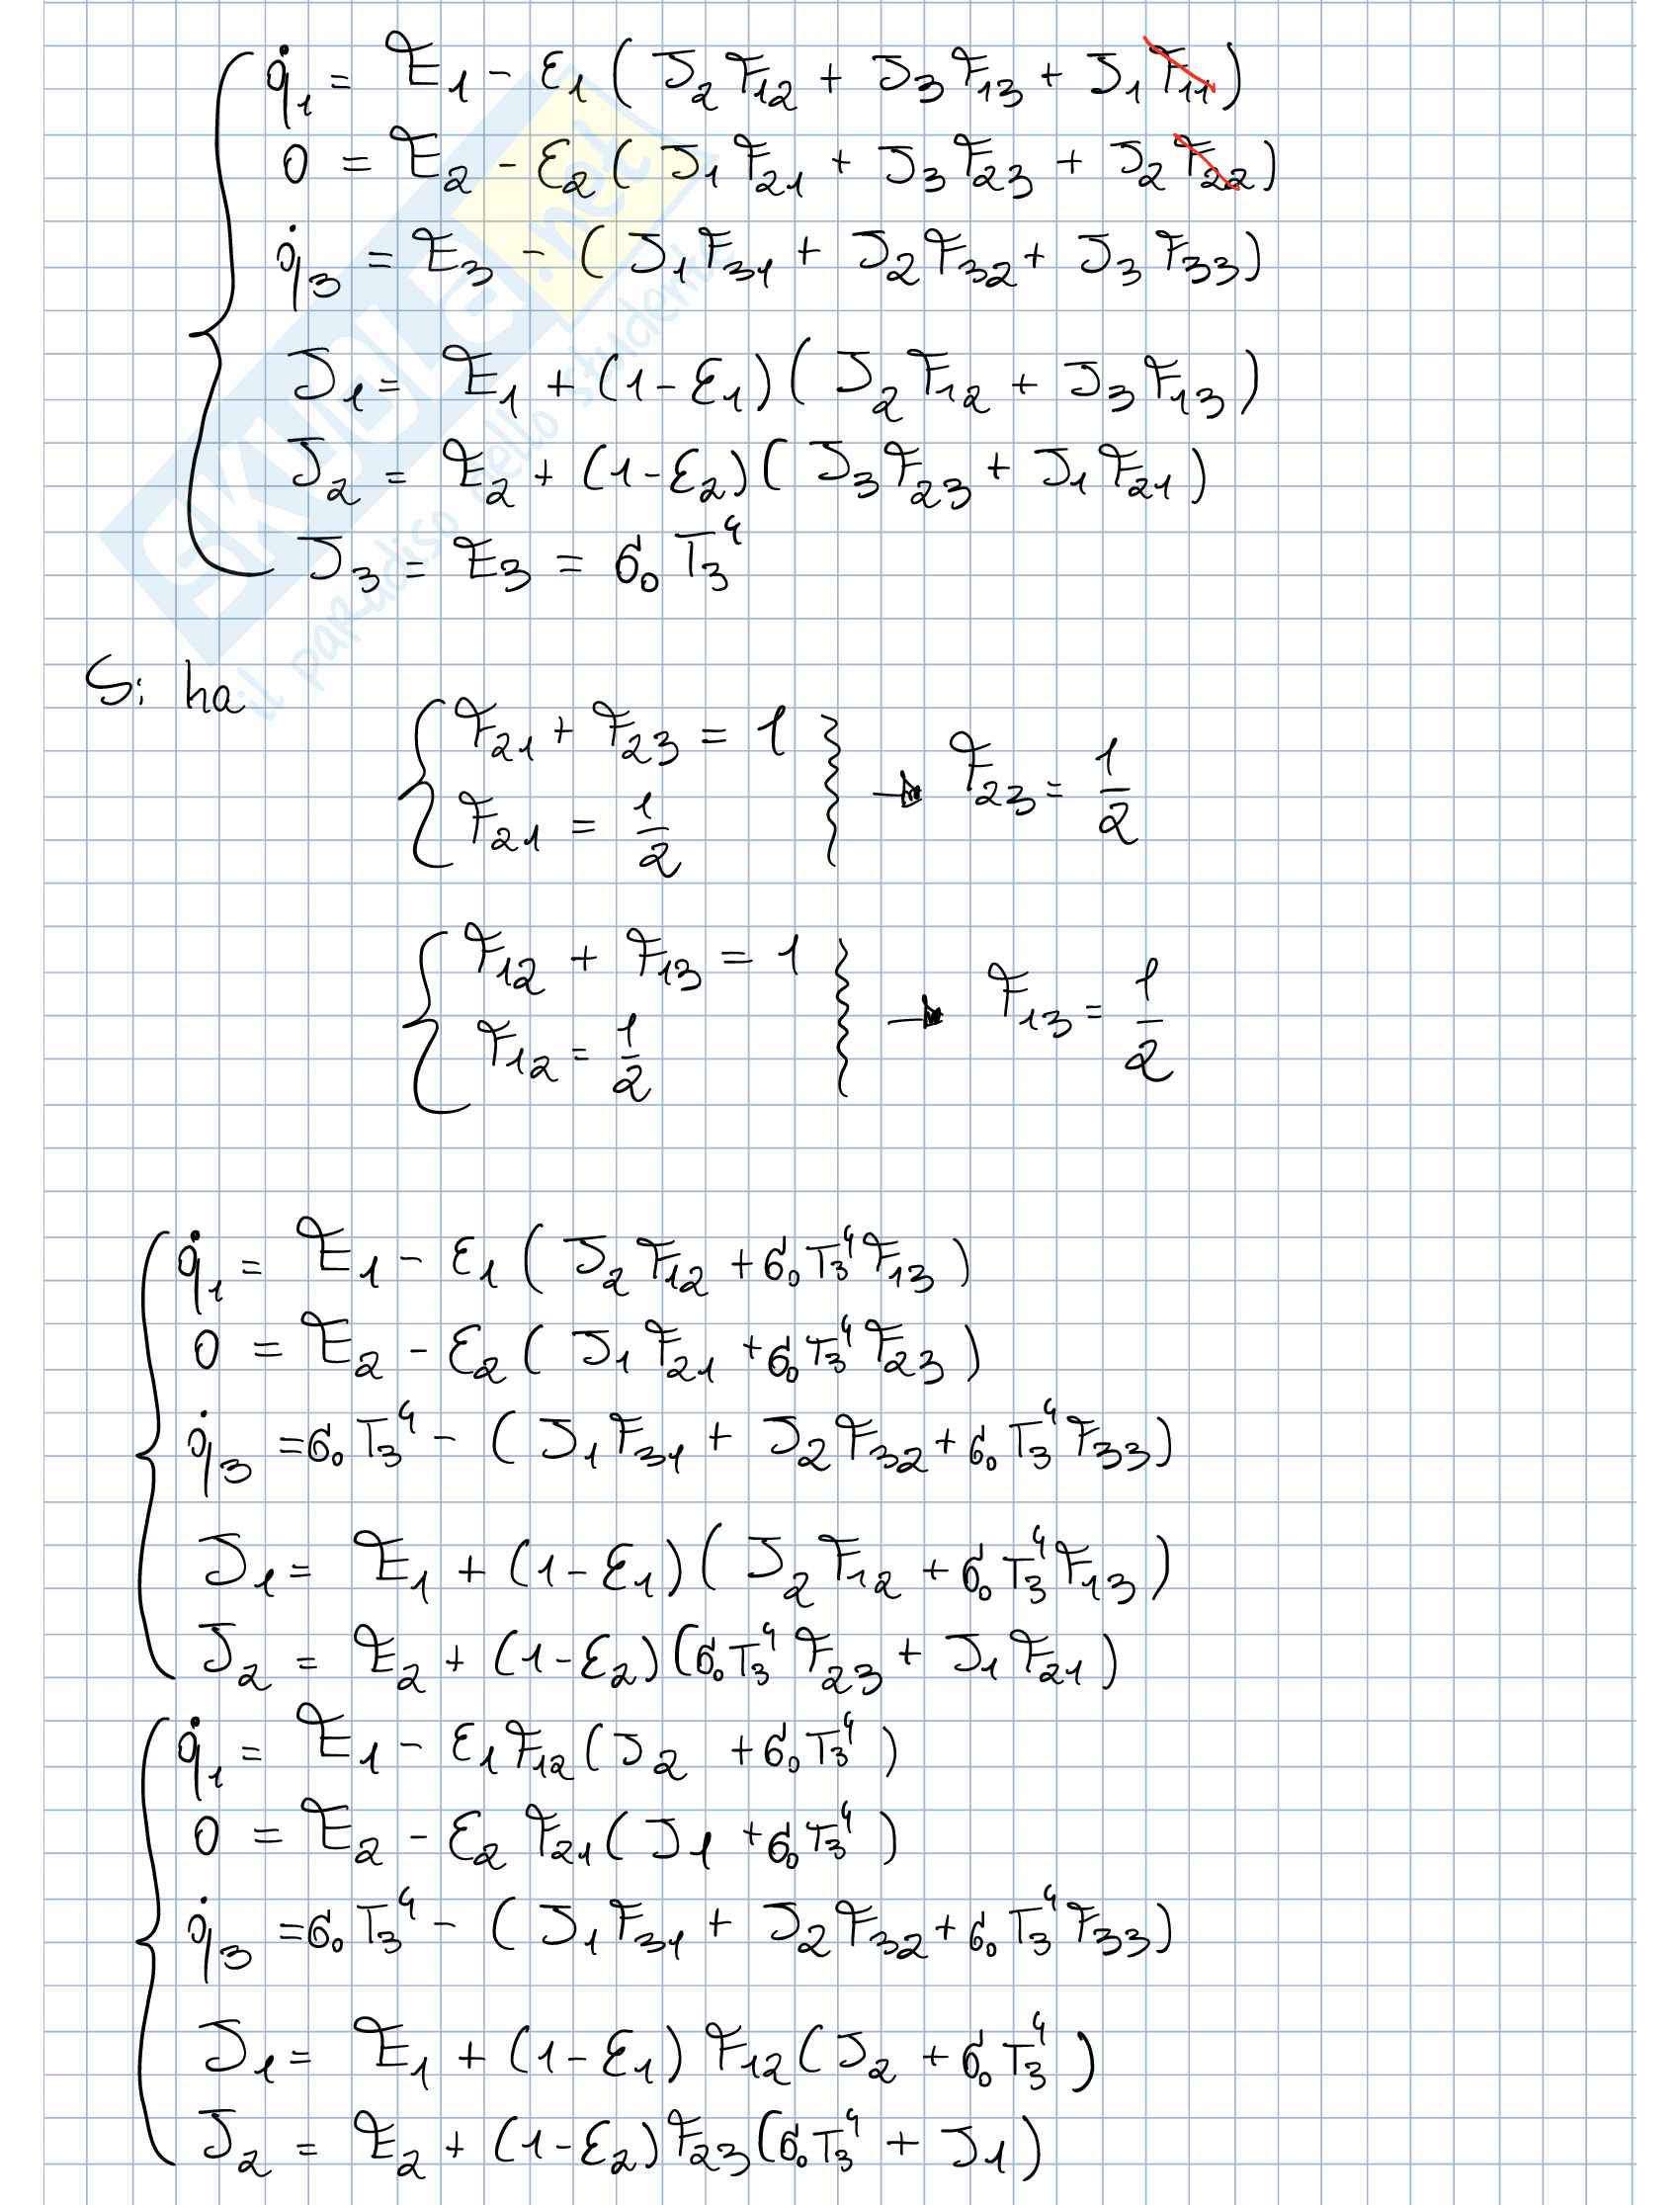 q̇₁ = E₁ - ε₁ ( J₂ F₁₂ + J₃ F₁₃ + J₁ F₁₁ )
0 = E₂ - ε₂ ( J₁ F₂₁ + J₃ F₂₃ + J₂ F₂₂ )
q̇₃ = E₃ - ( J₁ F₃₁ + J₂ F₃₂ + J₃ F₃₃ )
J₁ = E₁ + (1-ε₁) ( J₂ F₁₂ + J₃ F₁₃ )
J₂ = E₂ + (1-ε₂) ( J₃ F₂₃ + J₁ F₂₁ )
J₃ = E₃ = σ₀ T₃⁴
SKUOLA.net
il paradiso dello studente
Si ha
F₂₁ + F₂₃ = 1
F₂₁ = 1/2
→ F₂₃ = 1/2
F₁₂ + F₁₃ = 1
F₁₂ = 1/2
→ F₁₃ = 1/2
q̇₁ = E₁ - ε₁ ( J₂ F₁₂ + σ₀ T₃⁴ F₁₃ )
0 = E₂ - ε₂ ( J₁ F₂₁ + σ₀ T₃⁴ F₂₃ )
q̇₃ = σ₀ T₃⁴ - ( J₁ F₃₁ + J₂ F₃₂ + σ₀ T₃⁴ F₃₃ )
J₁ = E₁ + (1-ε₁) ( J₂ F₁₂ + σ₀ T₃⁴ F₁₃ )
J₂ = E₂ + (1-ε₂) ( σ₀ T₃⁴ F₂₃ + J₁ F₂₁ )
q̇₁ = E₁ - ε₁ F₁₂ ( J₂ + σ₀ T₃⁴ )
0 = E₂ - ε₂ F₂₁ ( J₁ + σ₀ T₃⁴ )
q̇₃ = σ₀ T₃⁴ - ( J₁ F₃₁ + J₂ F₃₂ + σ₀ T₃⁴ F₃₃ )
J₁ = E₁ + (1-ε₁) F₁₂ ( J₂ + σ₀ T₃⁴ )
J₂ = E₂ + (1-ε₂) F₂₃ ( σ₀ T₃⁴ + J₁ )